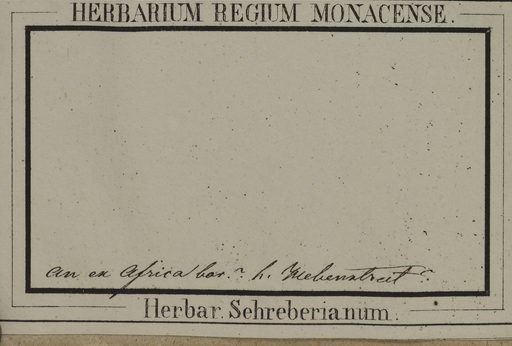 HERBARIUM REGIUM MONACENSE.
an ex Africa bor.? h. Hebenstreit?
Herbar. Schreberianum.